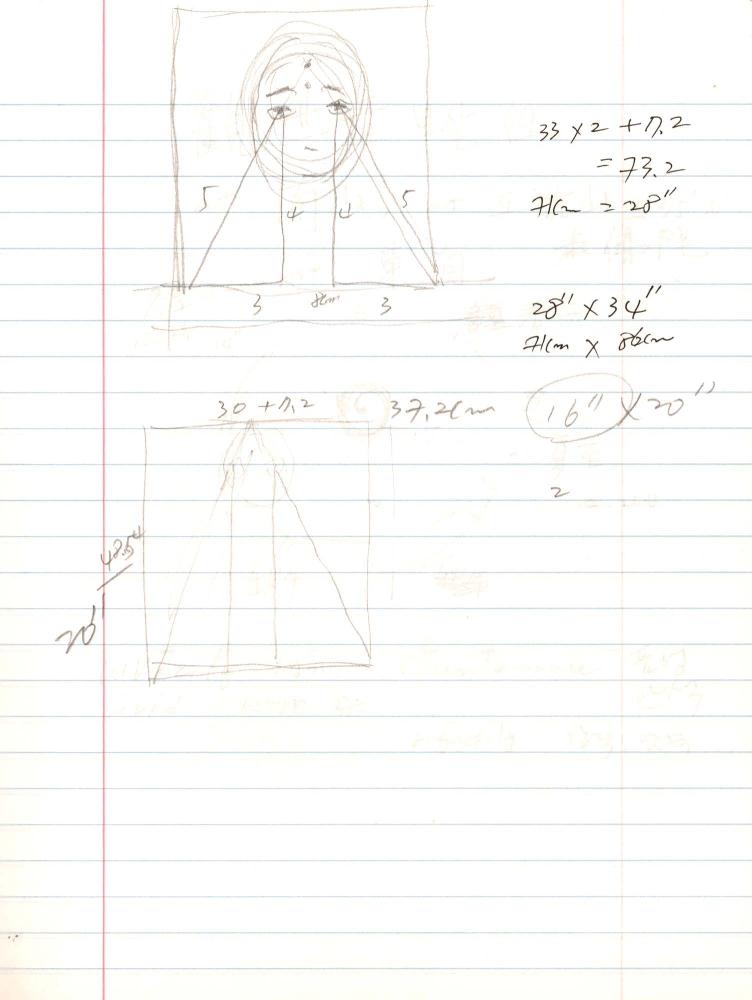 5 4 4 5
3 8cm 3
33 x 2 + 7.2
= 73.2
71cm = 28"
28" x 34"
71cm x 86cm
30 + 7.2 37.2cm
16" x 20"
2
20"